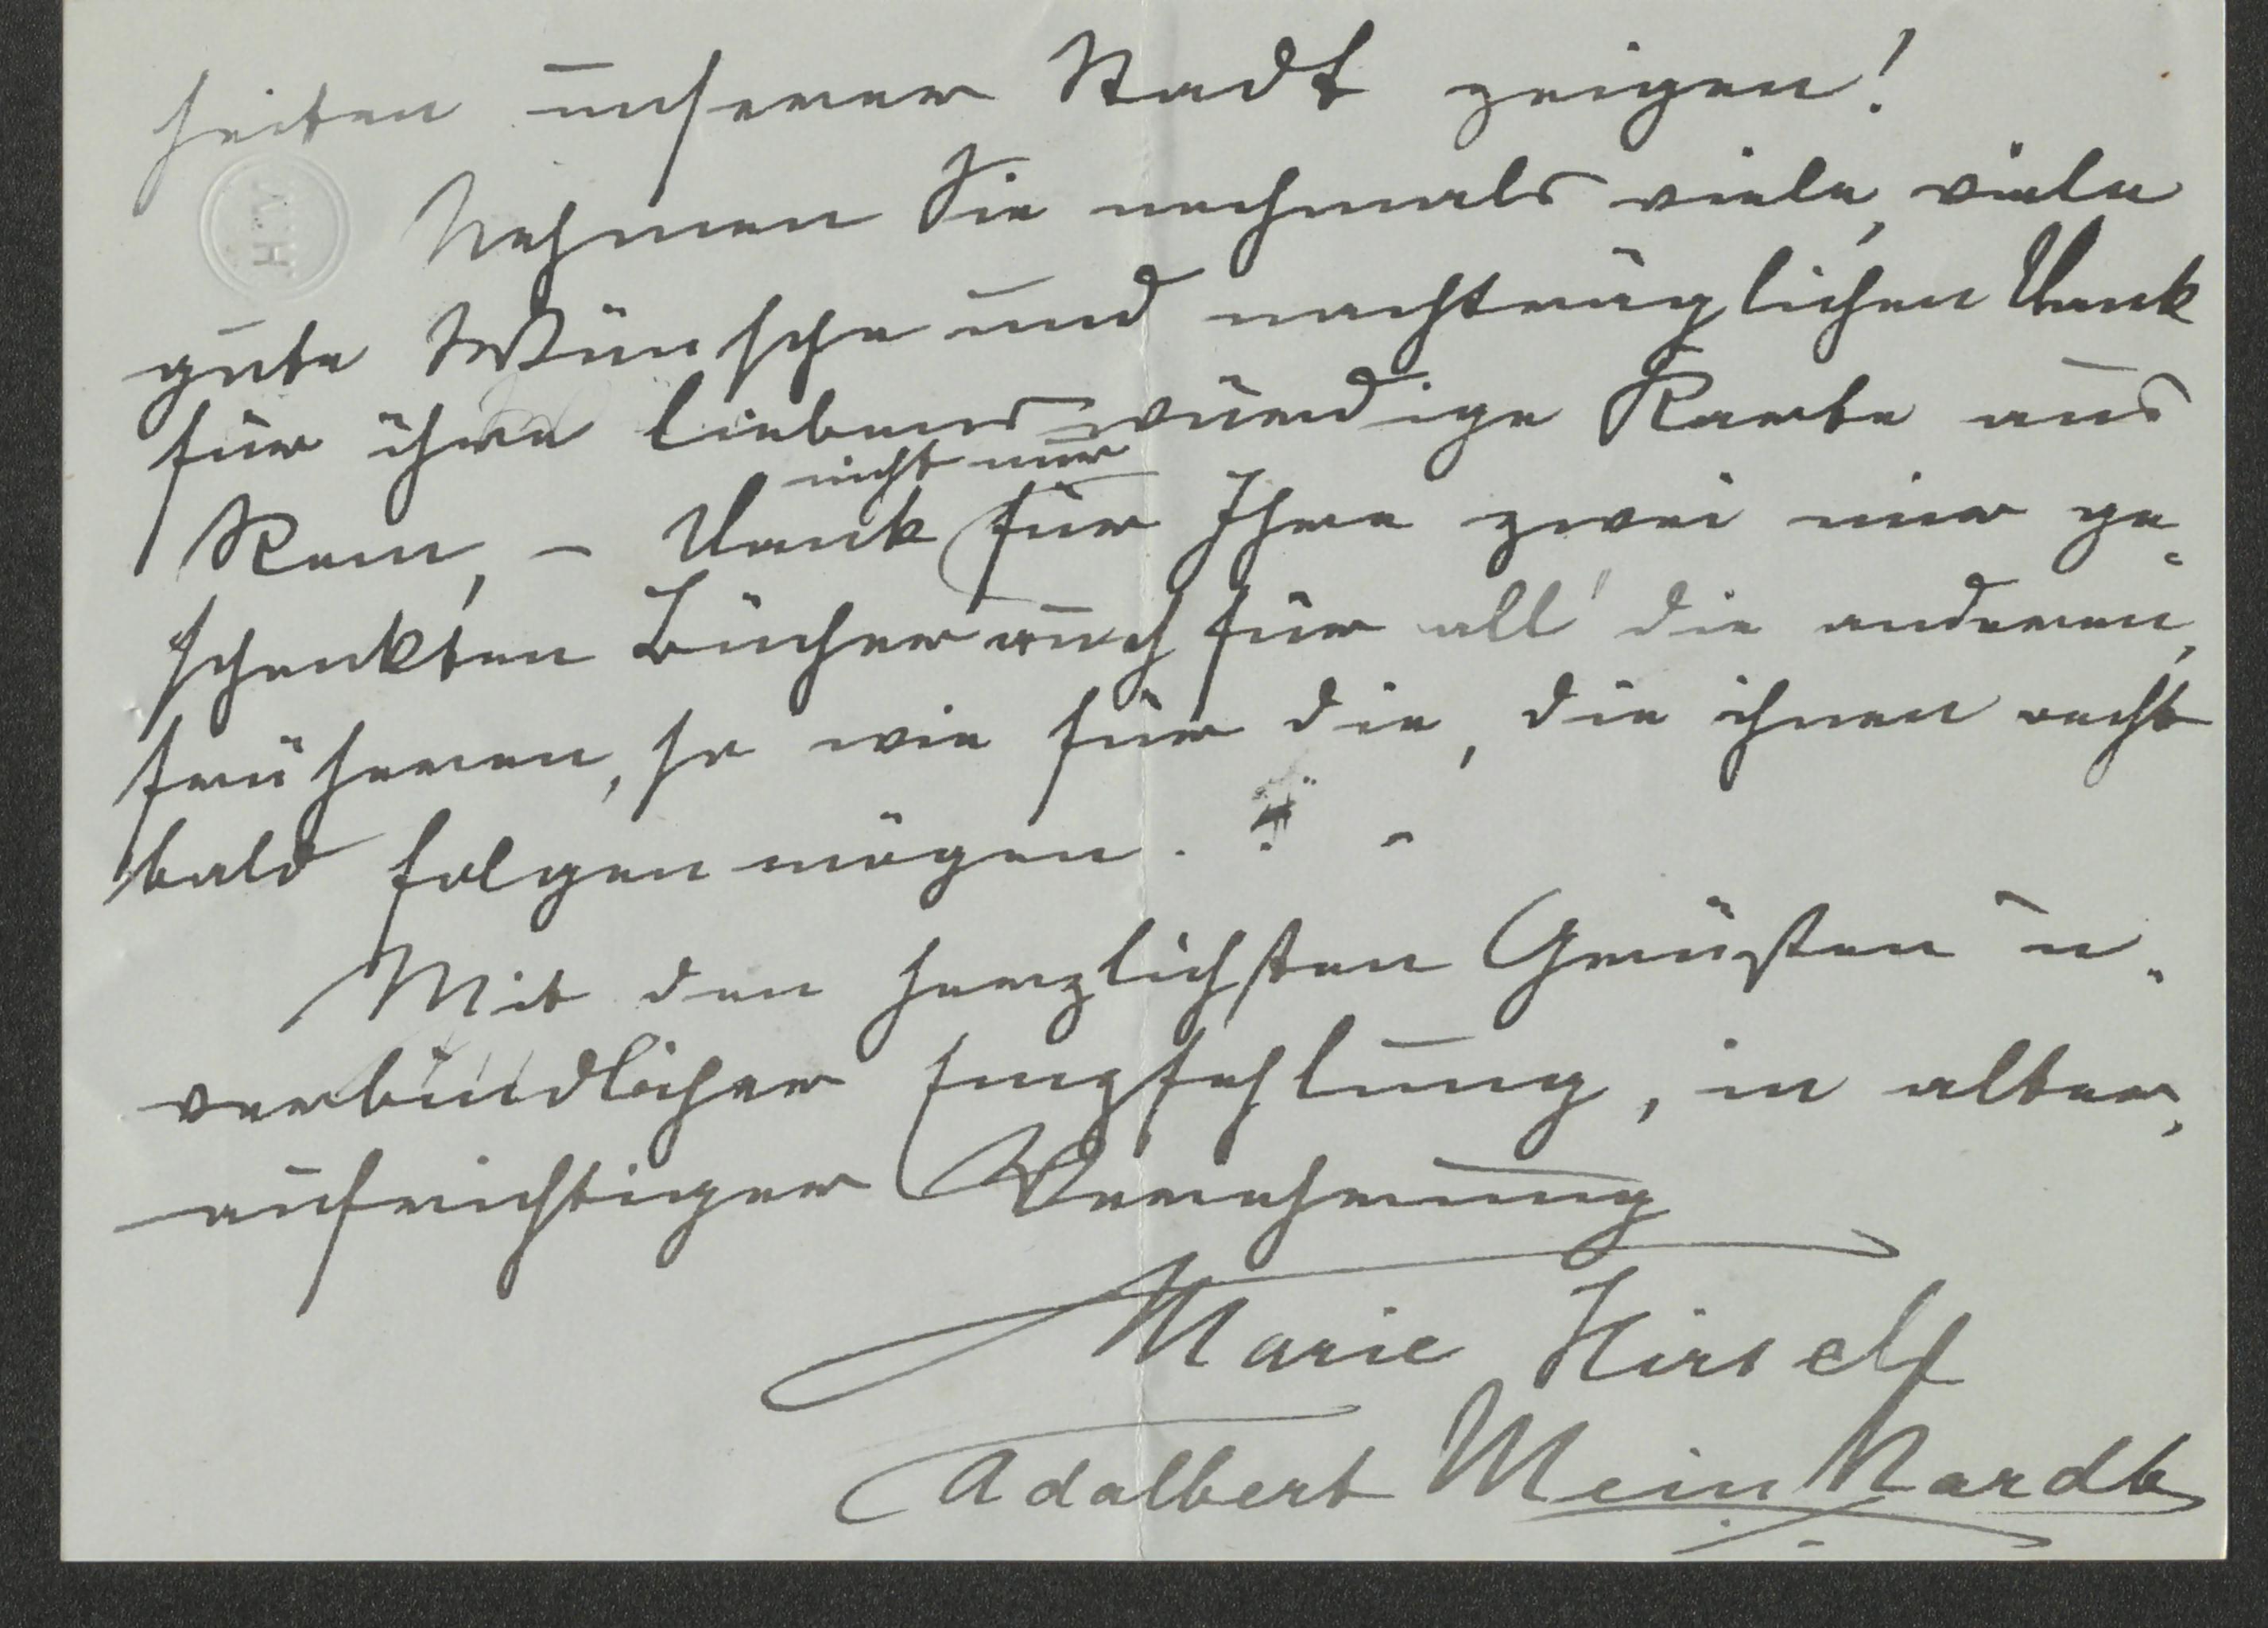 heiten unserer Stadt zeigen!
Nehmen Sie nochmals viele, viele
gute Wünsche und nachträglichen Dank
für ihre liebenswürdige Karte aus
Rom, – Dank nicht nur für Ihre zwei mir ge-
schenkten Bücher auch für all' die anderen,
früheren, so wie für die, die ihnen recht
bald folgen mögen. –
Mit den herzlichsten Grüßen u.
verbindlicher Empfehlung, in alter,
aufrichtiger Verehrung
Marie Hirsch
Adalbert Meinhardt